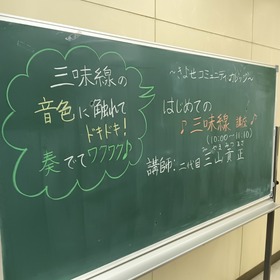 三味線の
音色に触れて
ドキドキ!
奏でてワクワク♪
〜きよせコミュニティカレッジ〜
はじめての
♪三味線 講座♪
(10:00〜11:10)
講師:二代目 三山貢正